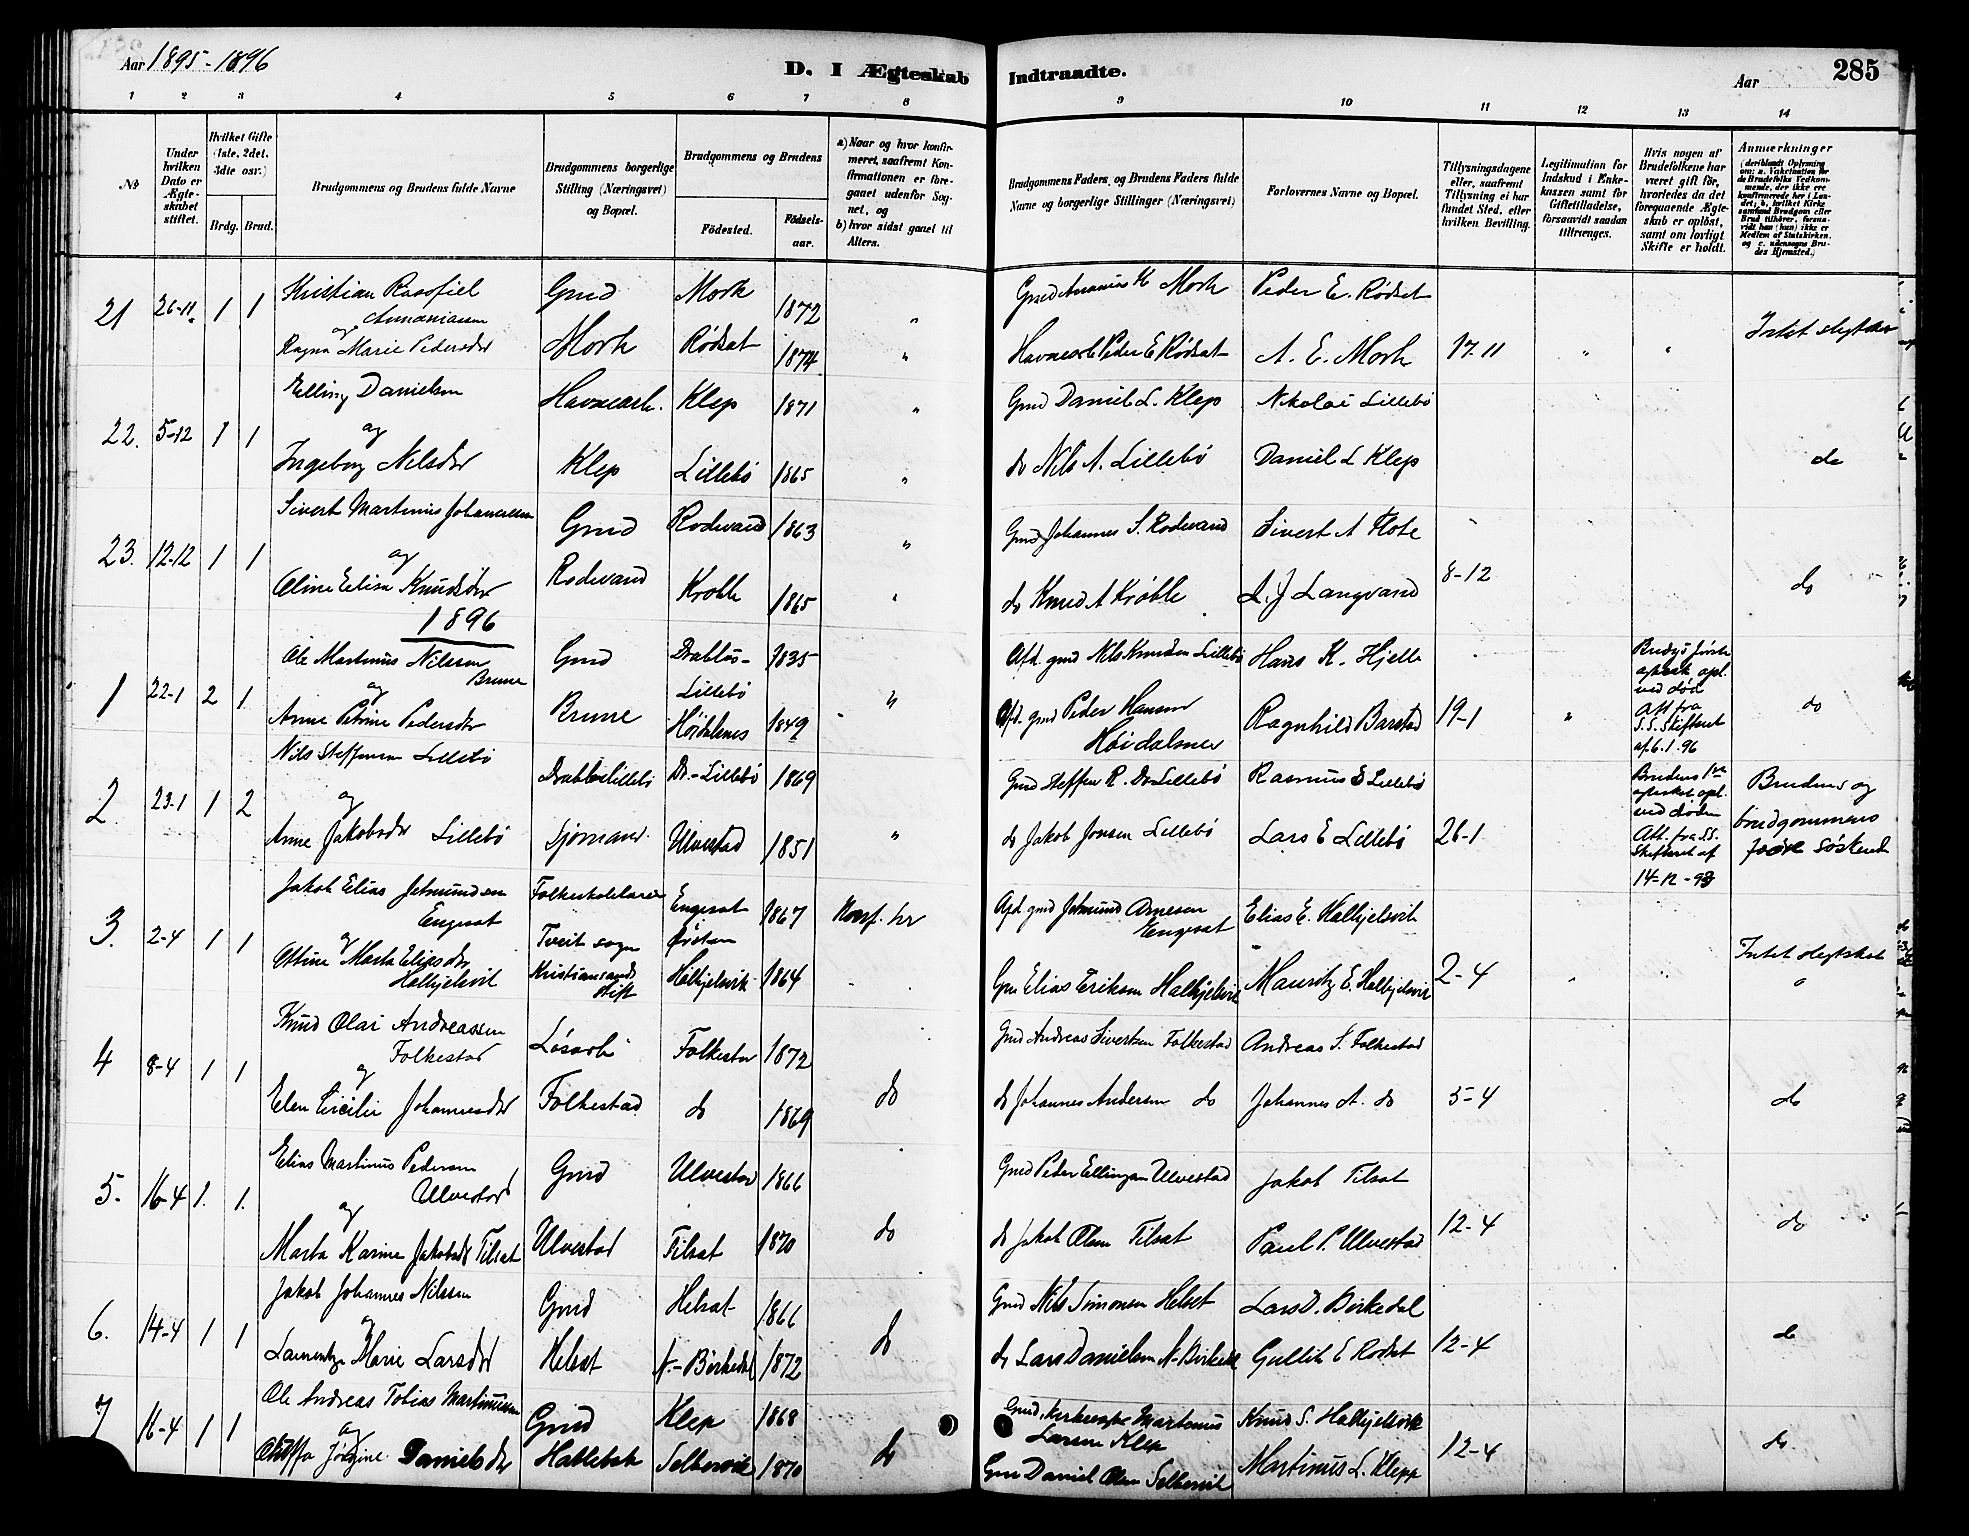 Aar 1895-1896
D. I Ægteskab Indtraadte.
Aar
285
1 2 3 4 5 6 7 8 9 10 11 12 13 14
№
Under hvilken Dato er Ægteskabet stiftet.
Hvilket Gifte (1ste, 2det, 3dte osv.)
Brdg. Brud.
Brudgommens og Brudens fulde Navne
Brudgommens borgerlige Stilling (Næringsvei) og Bopæl.
Brudgommens og Brudens
Fødested.
Fødselsaar.
a) Naar og hvor konfirmeret, saafremt Konfirmationen er foregaaet udenfor Sognet, og
b) hvor sidst gaaet til Alters.
Brudgommens Faders og Brudens Faders fulde Navne og borgerlige Stillinger (Næringsvei)
Forlovernes Navne og Bopæl.
Tillysningsdagene eller, saafremt Tillysning ei har fundet Sted, efter hvilken Bevilling.
Legitimation for Indskud i Enkekassen samt for Giftetilladelse, forsaavidt saadan tiltrænges.
Hvis nogen af Brudefolkene har været gift før, hvorledes da det foregaaende Ægteskab er opløst, samt om lovligt Skifte er holdt.
Anmerkninger
(deriblandt Oplysning om: a. Vakcination for de Brudefolks Vedkommende, der ikke ere konfirmerede her i Landet, b. hvilket Kirkesamfund Brudgom eller Brud tilhører, forsaavidt han (hun) ikke er Medlem af Statskirken, og c. udensogns Brudes Hjemsted.)
21 26-11 1 1 Kristian Gmd Mork 1872 " Mork Peder E. Rødset
Ananiassen
og
Ragna Marie Pedersdr Mork Rødsat 1874 " Peder E Rødset A. E. Mork 17-11 " " Intet
Elling Danielsen Havnearb. Klep 1871 " Gmd Daniel L. Klep Nikolai Lillebø
22. 5-12 1 1 og
Ingeborg Nilsdr Klep Lillebø 1865 " do Nils A. Lillebø Daniel L Klep do
Sivert Martinus Johannessen Gmd Rodevand 1863 " Gmd Johannes S. Rodevand Sivert A Flote
23. 12-12 1 1 og
Oline Elisa Knudsdr Rodevand 1865 do Knud A Langvand 8-12 do
1896
Ole Martinus Nilssen Gmd 1835 Afd. gmd Nils Knudsen Lillebø Hans K. Hjelle
Brune Lillebø
1 22-1 2 1 og "
Anne Petrine Pedersdr Brune 1849 Afd. gmd Peder Hansen Ragnhild Barstad 19-1 " do
ved død
Att fra
S.S. Skifteret
af 6.1.96
Nils Steffensen Lillebø 1869 Gmd Steffen R. Lillebø Rasmus E Lillebø
2. 23-1 1 2 og
Anne Jakobsdr Lillebø Sjømand Ulvestad 1851 " do Jakob Jonsen Lillebø Lars E Lillebø 26-1
Brudens 1ste
ved døden
Att. fra S.S.
Skifteret af
Brudens og
brudgommens
Søskend
Jakob Elias Jetmundsen Engesat 1867 Konf. her Afd. gmd Jetmund Arnesen Elias E. Halkjelsvik
Engesat Ørsten Engesat
3. 2-4 1 1 og Tveit sogn
Marta Eliasdr Kristiansands Halkjelsvik 1864 Elias Eriksen Halkjelsvik Mauritz E. Halkjelsvik 2-4 " Intet slegtskab
Halkjelsvik Stift
Knud Olai Andreassen Løsarb. Folkestad 1872 Gmd Andreas Sivertsen Folkestad Andreas S. Folkestad
Folkestad
4 8-4 1 1 og
Elen Cecilie Johannesdr Folkestad do 1869 do do Johannes Andersen do Johannes A. do 5-4 do
Elias Martinus Pedersen Gmd Ulvestad 1866 Gmd Peder Ellingsen Ulvestad Jakob Tilsat
Ulvestad
5. 16-4 1. 1. og
Marta Karine Jakobsdr Tilsat Ulvestad Tilsat 1870 do do Jakob Olsen Tilsat Paul P. Ulvestad 12-4 do
Jakob Johannes Nilssen Gmd Helsat 1866 Gmd Nils Simonsen Helset Lars D. Birkedal
6. 14-4 1 1 og
Marie Larsdr Helsat N.-Birkedal 1872 do do Lars Danielsen N-Birkedal Gullik E Rødset 12-4 do
Ole Andreas Tobias Martinussen Gmd Klep 1868 Gmd. Martinus Knud S. Halkjelsvik
Larsen Klep
7 16-4 1 1 og
Jørgine Danielsdr Selbervik 1870 do Daniel Olsen Selbervik Martinus L. Klepp 12-4 do.